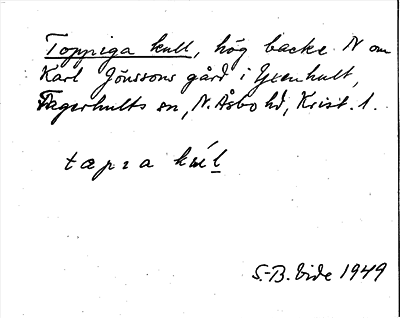 Toppiga kull, hög backe N om
Karl Jönssons gård i Yxenhult,
Fagerhults sn, N. Åsbo hd, Krist. l.
S.-B. Vide 1949